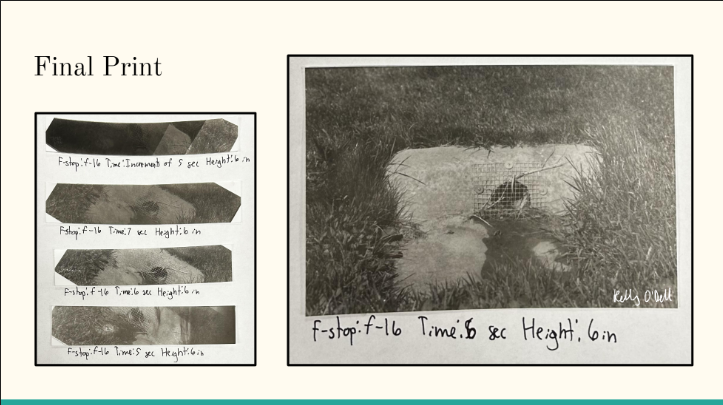 Final Print
F-stop: f-16 Time: Increment of 5 sec Height: 6 in
F-stop: f-16 Time: 7 sec Height: 6 in
F-stop: f-16 Time: 6 sec Height: 6 in
F-stop: f-16 Time: 5 sec Height: 6 in
Kelly O'Dell
F-stop: f-16 Time: 6 sec Height: 6 in